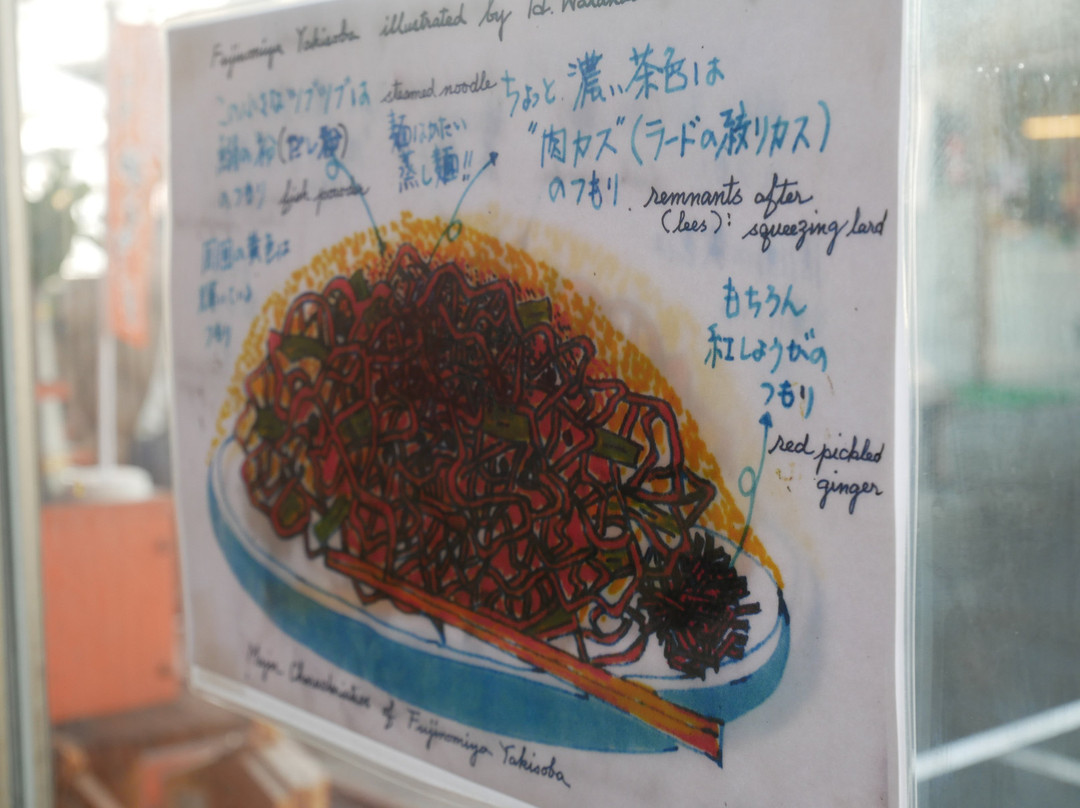 Fujinomiya Yakisoba illustrated by H.
この小さなツブツブは
粉(だし粉)
のつもり
fish powder
steamed noodle
麺はかたい
蒸し麺!!
ちょっと濃い茶色は
"肉カズ"(ラードの絞りカス)
のつもり
remnants after
(lees): squeezing lard
周囲の黄色は
輝いている
つもり
もちろん
紅しょうがの
つもり
red pickled
ginger
Major Characteristics of Fujinomiya Yakisoba